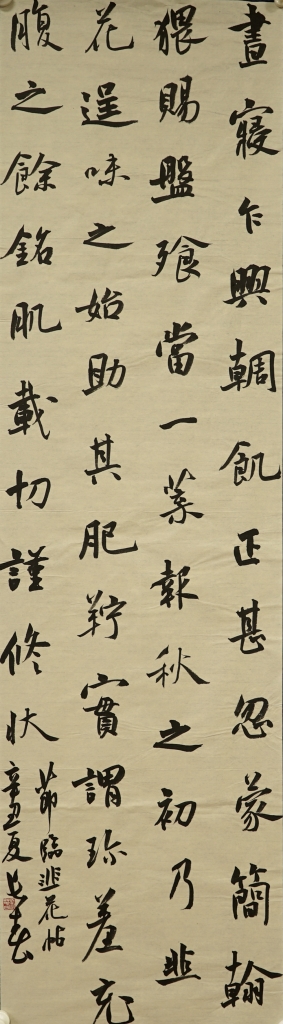 晝寢乍興輖飢正甚忽蒙簡翰
猥賜盤飱當一葉報秋之初乃韭
花逞味之始助其肥羜實謂珍羞充
腹之餘銘肌載切謹修狀
節臨韭花帖
辛丑夏